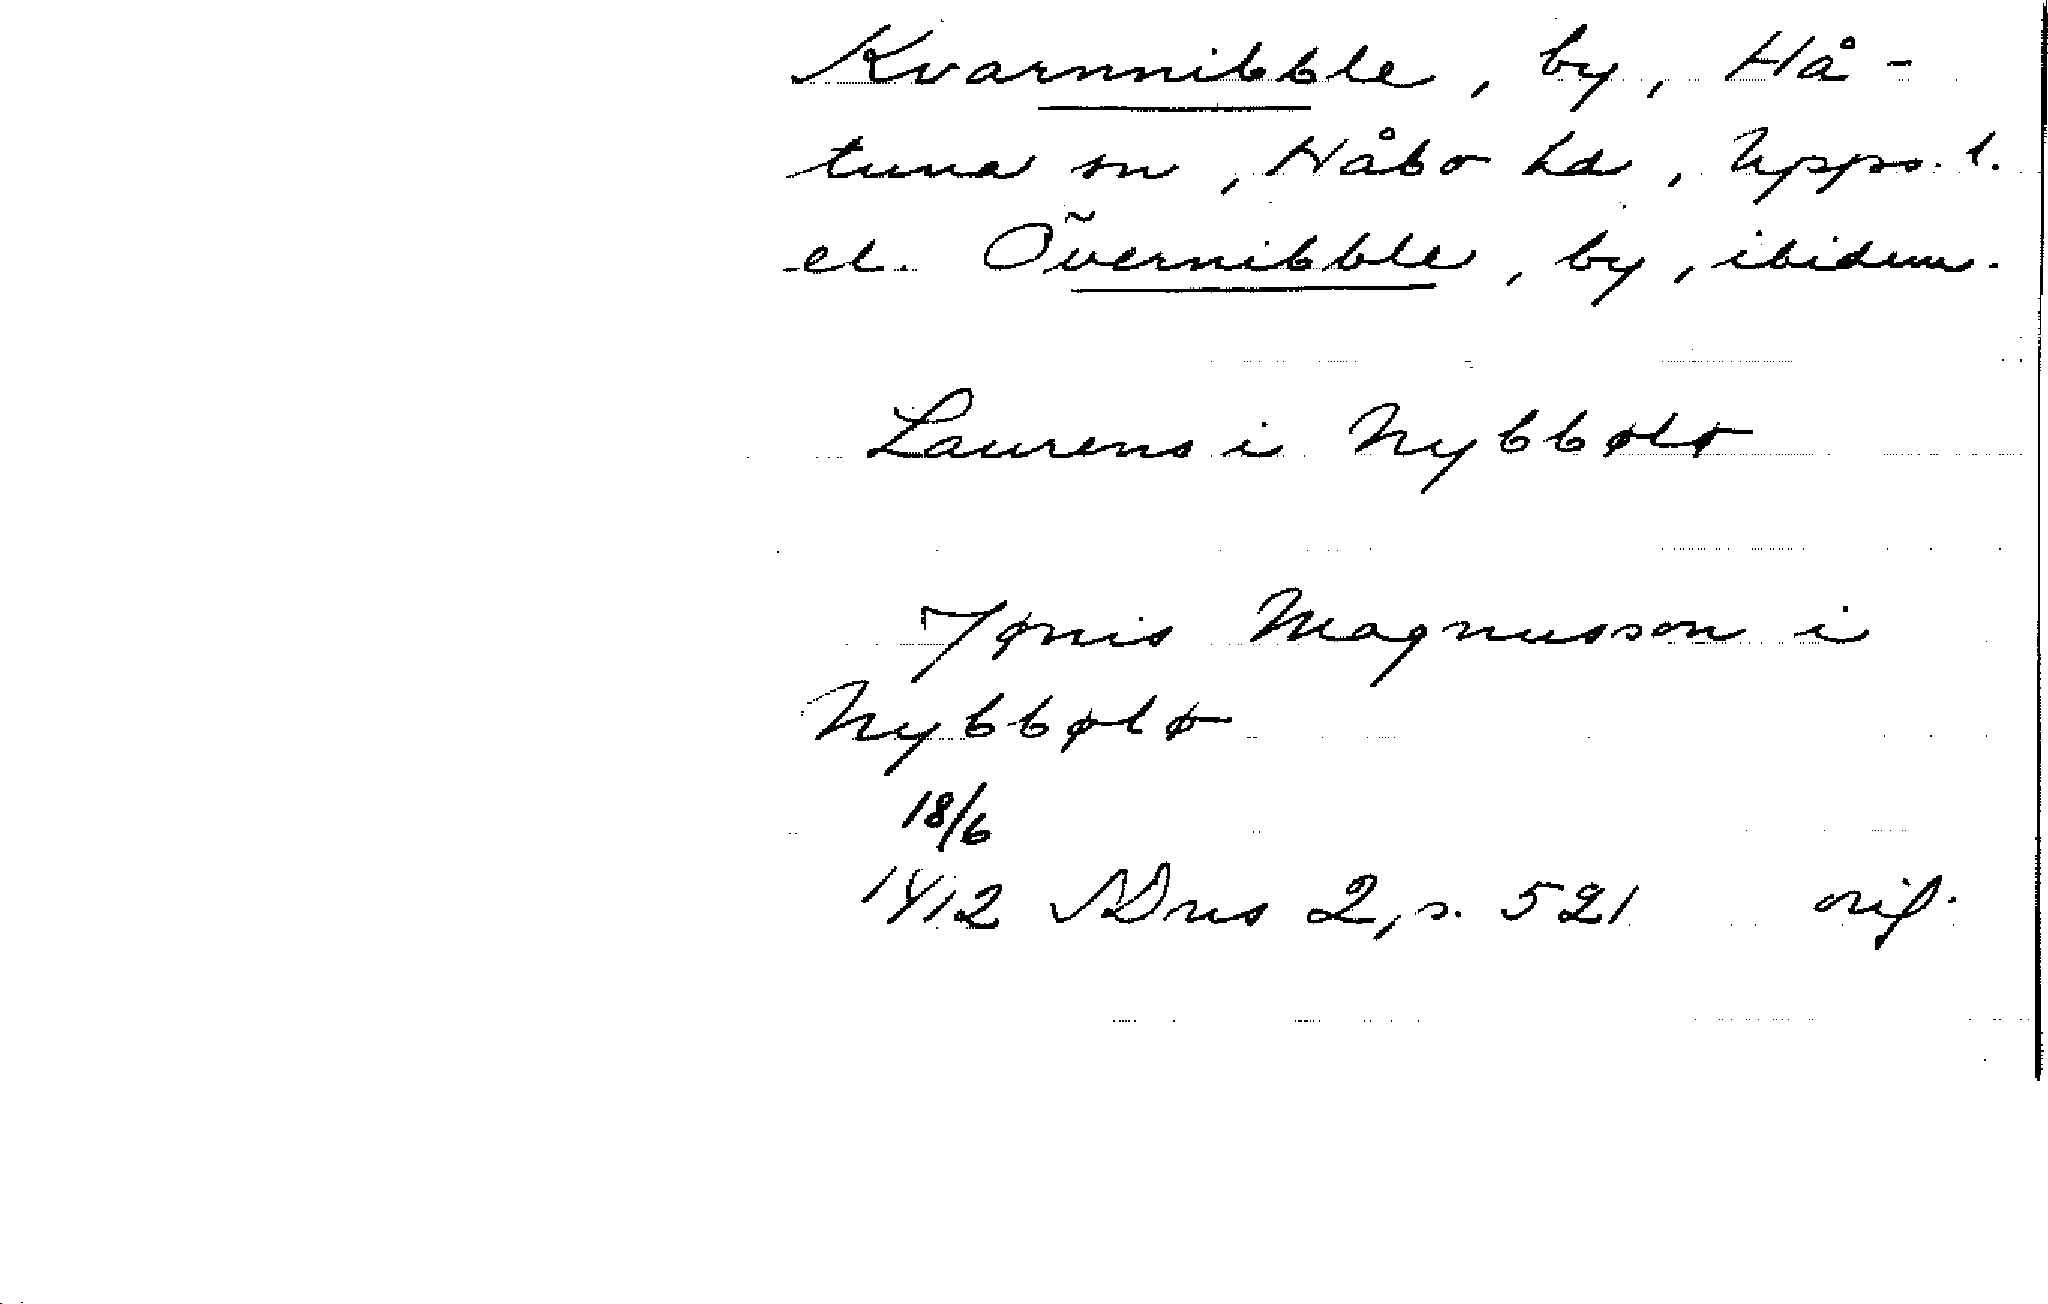 Kvarnnibble, by, Hå-
tuna sn, Håbo hd, Upps. l.
el. Övernibble, by, ibidem.
Laurens i Nybbøle
Jønis Magnusson i
Nybbølø
18/6
1412 SDns 2, s. 521 orig.